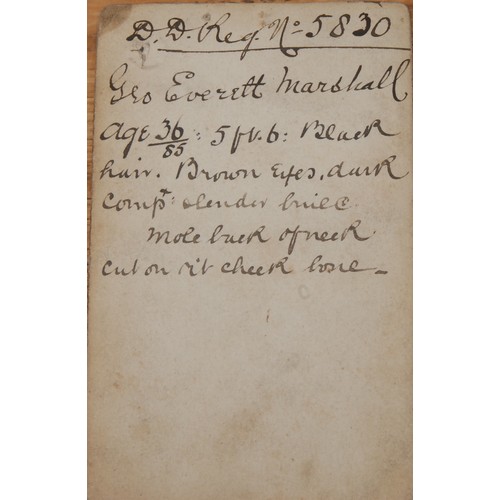 D.D. Reg. No 5830
Geo Everett Marshall
age 36/85: 5 ft. 6: Black
hair. Brown Eyes, dark
Compt: slender build
Mole back of neck
Cut on r't cheek bone_